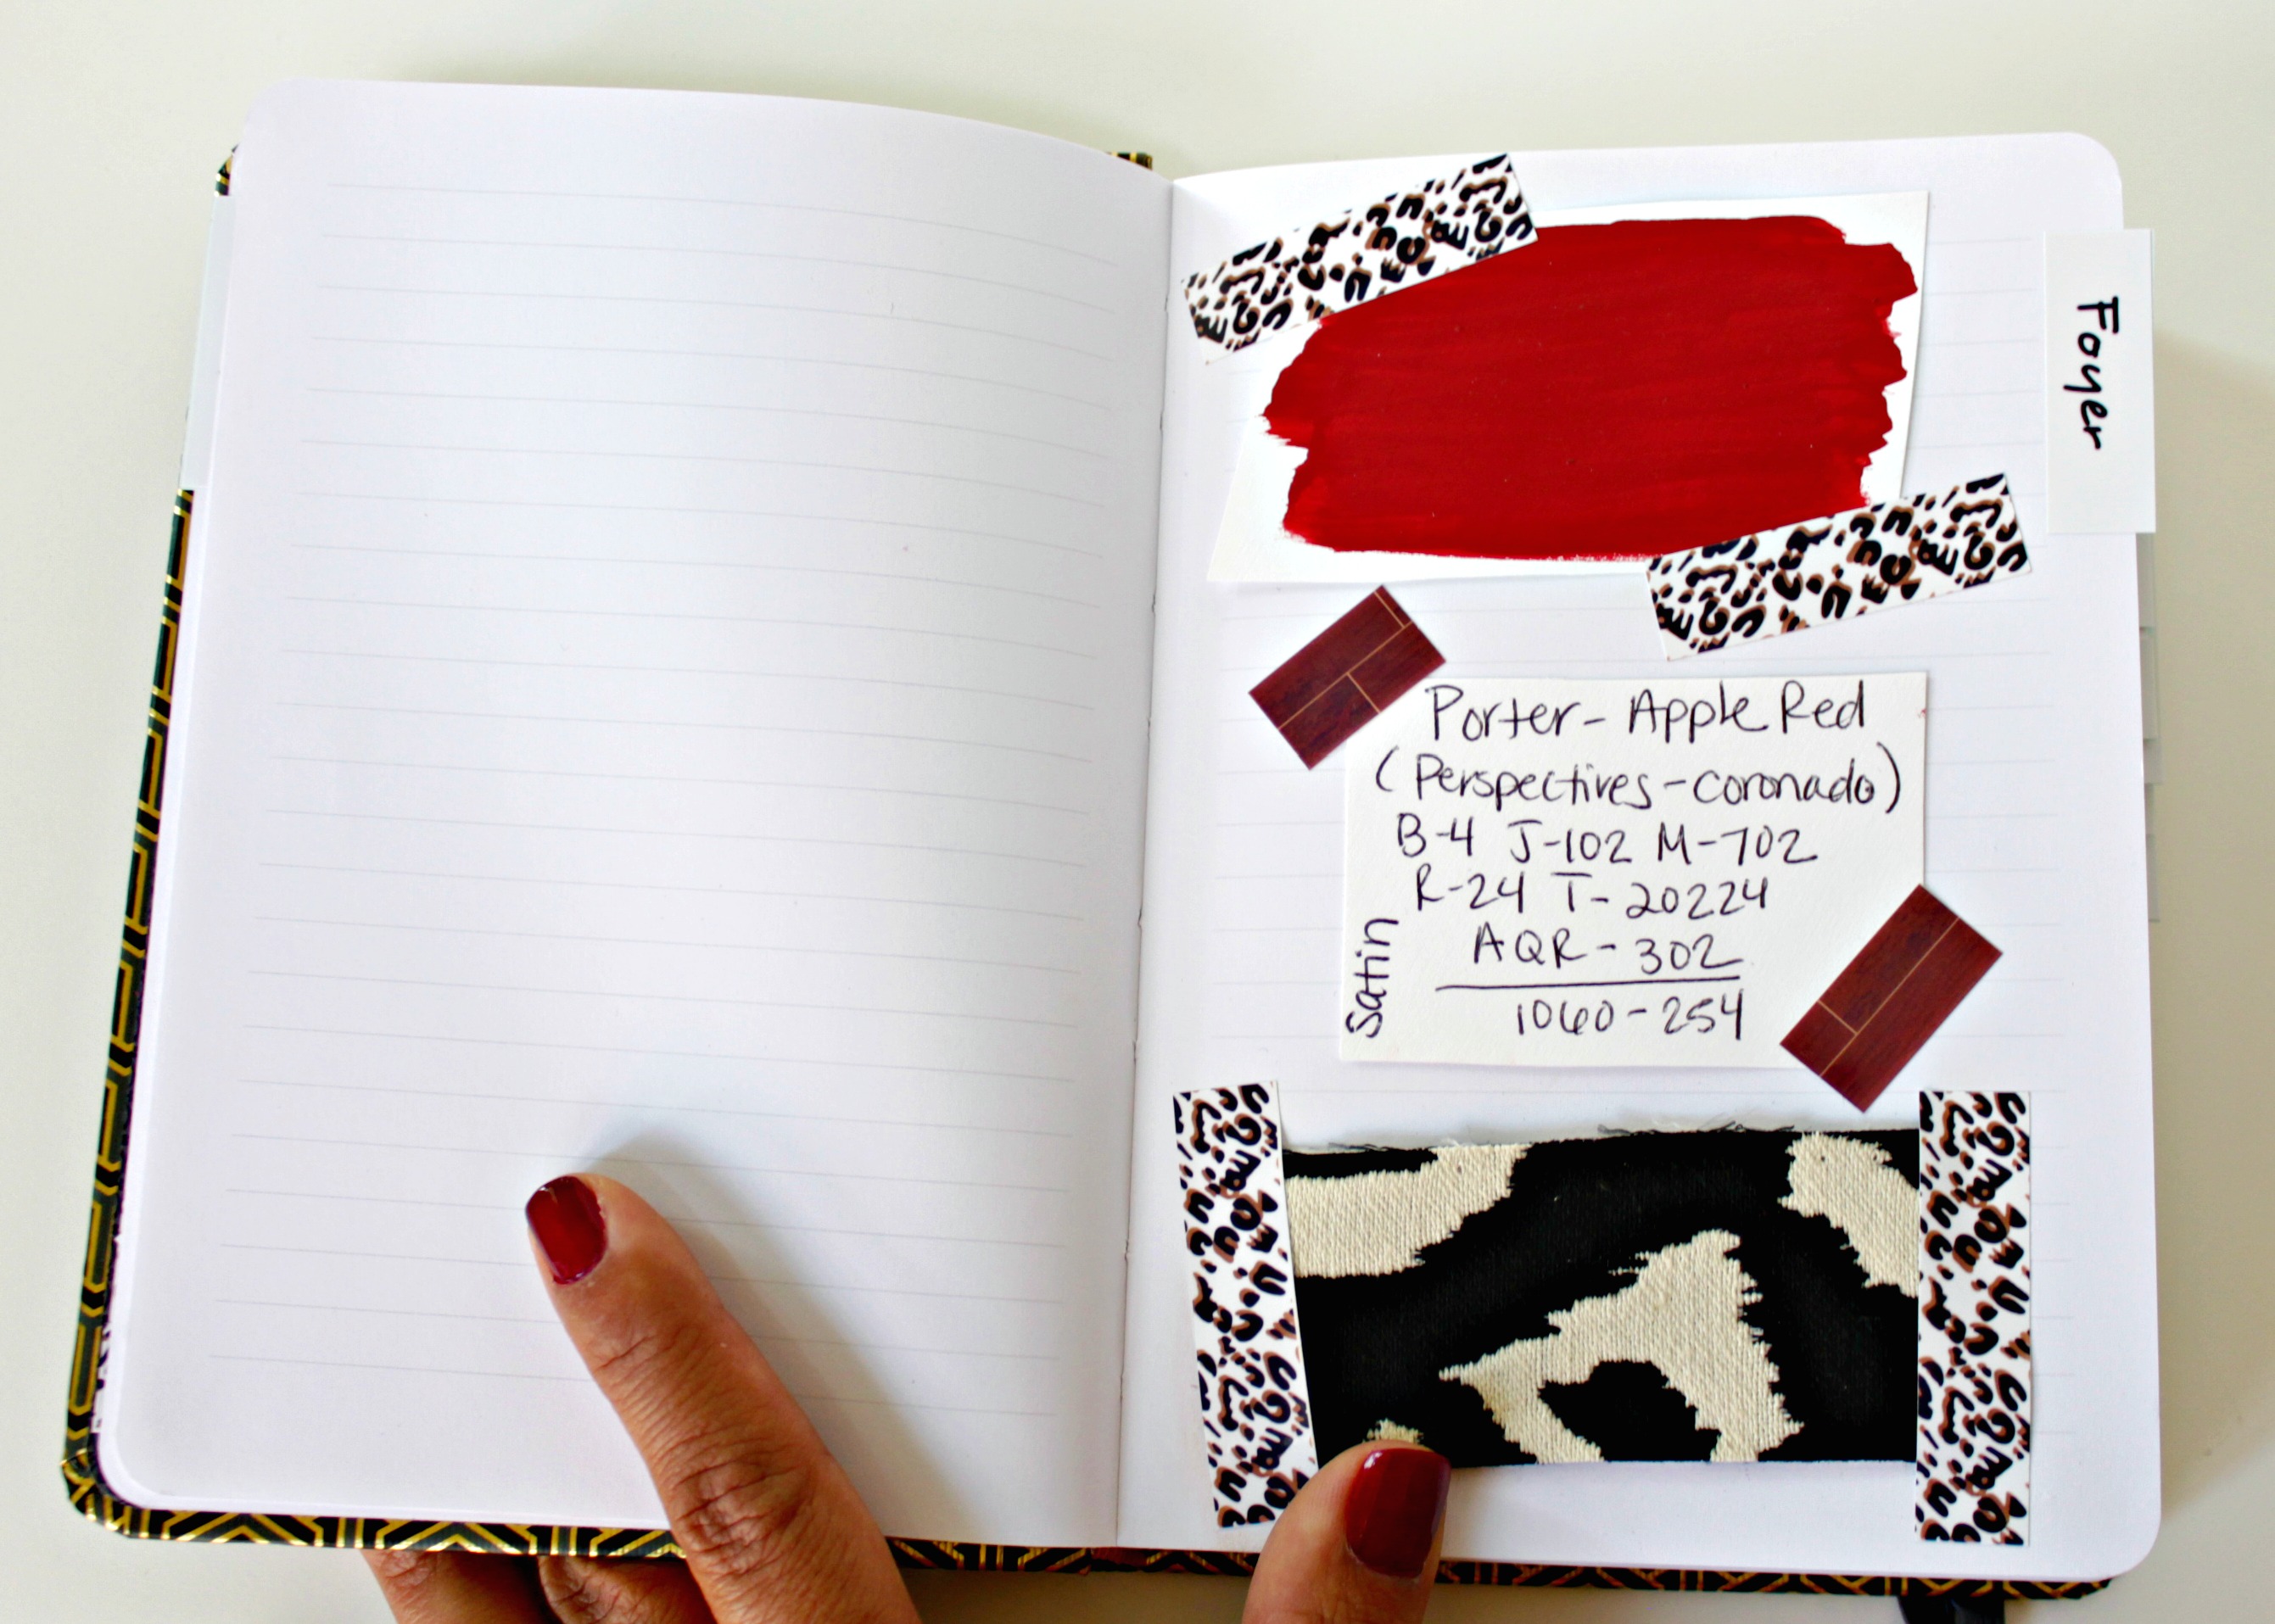 Foyer
Porter- Apple Red
(Perspectives-coronado)
B-4 J-102 M-702
R-24 T-20224
AQR-302
1060-254
Satin